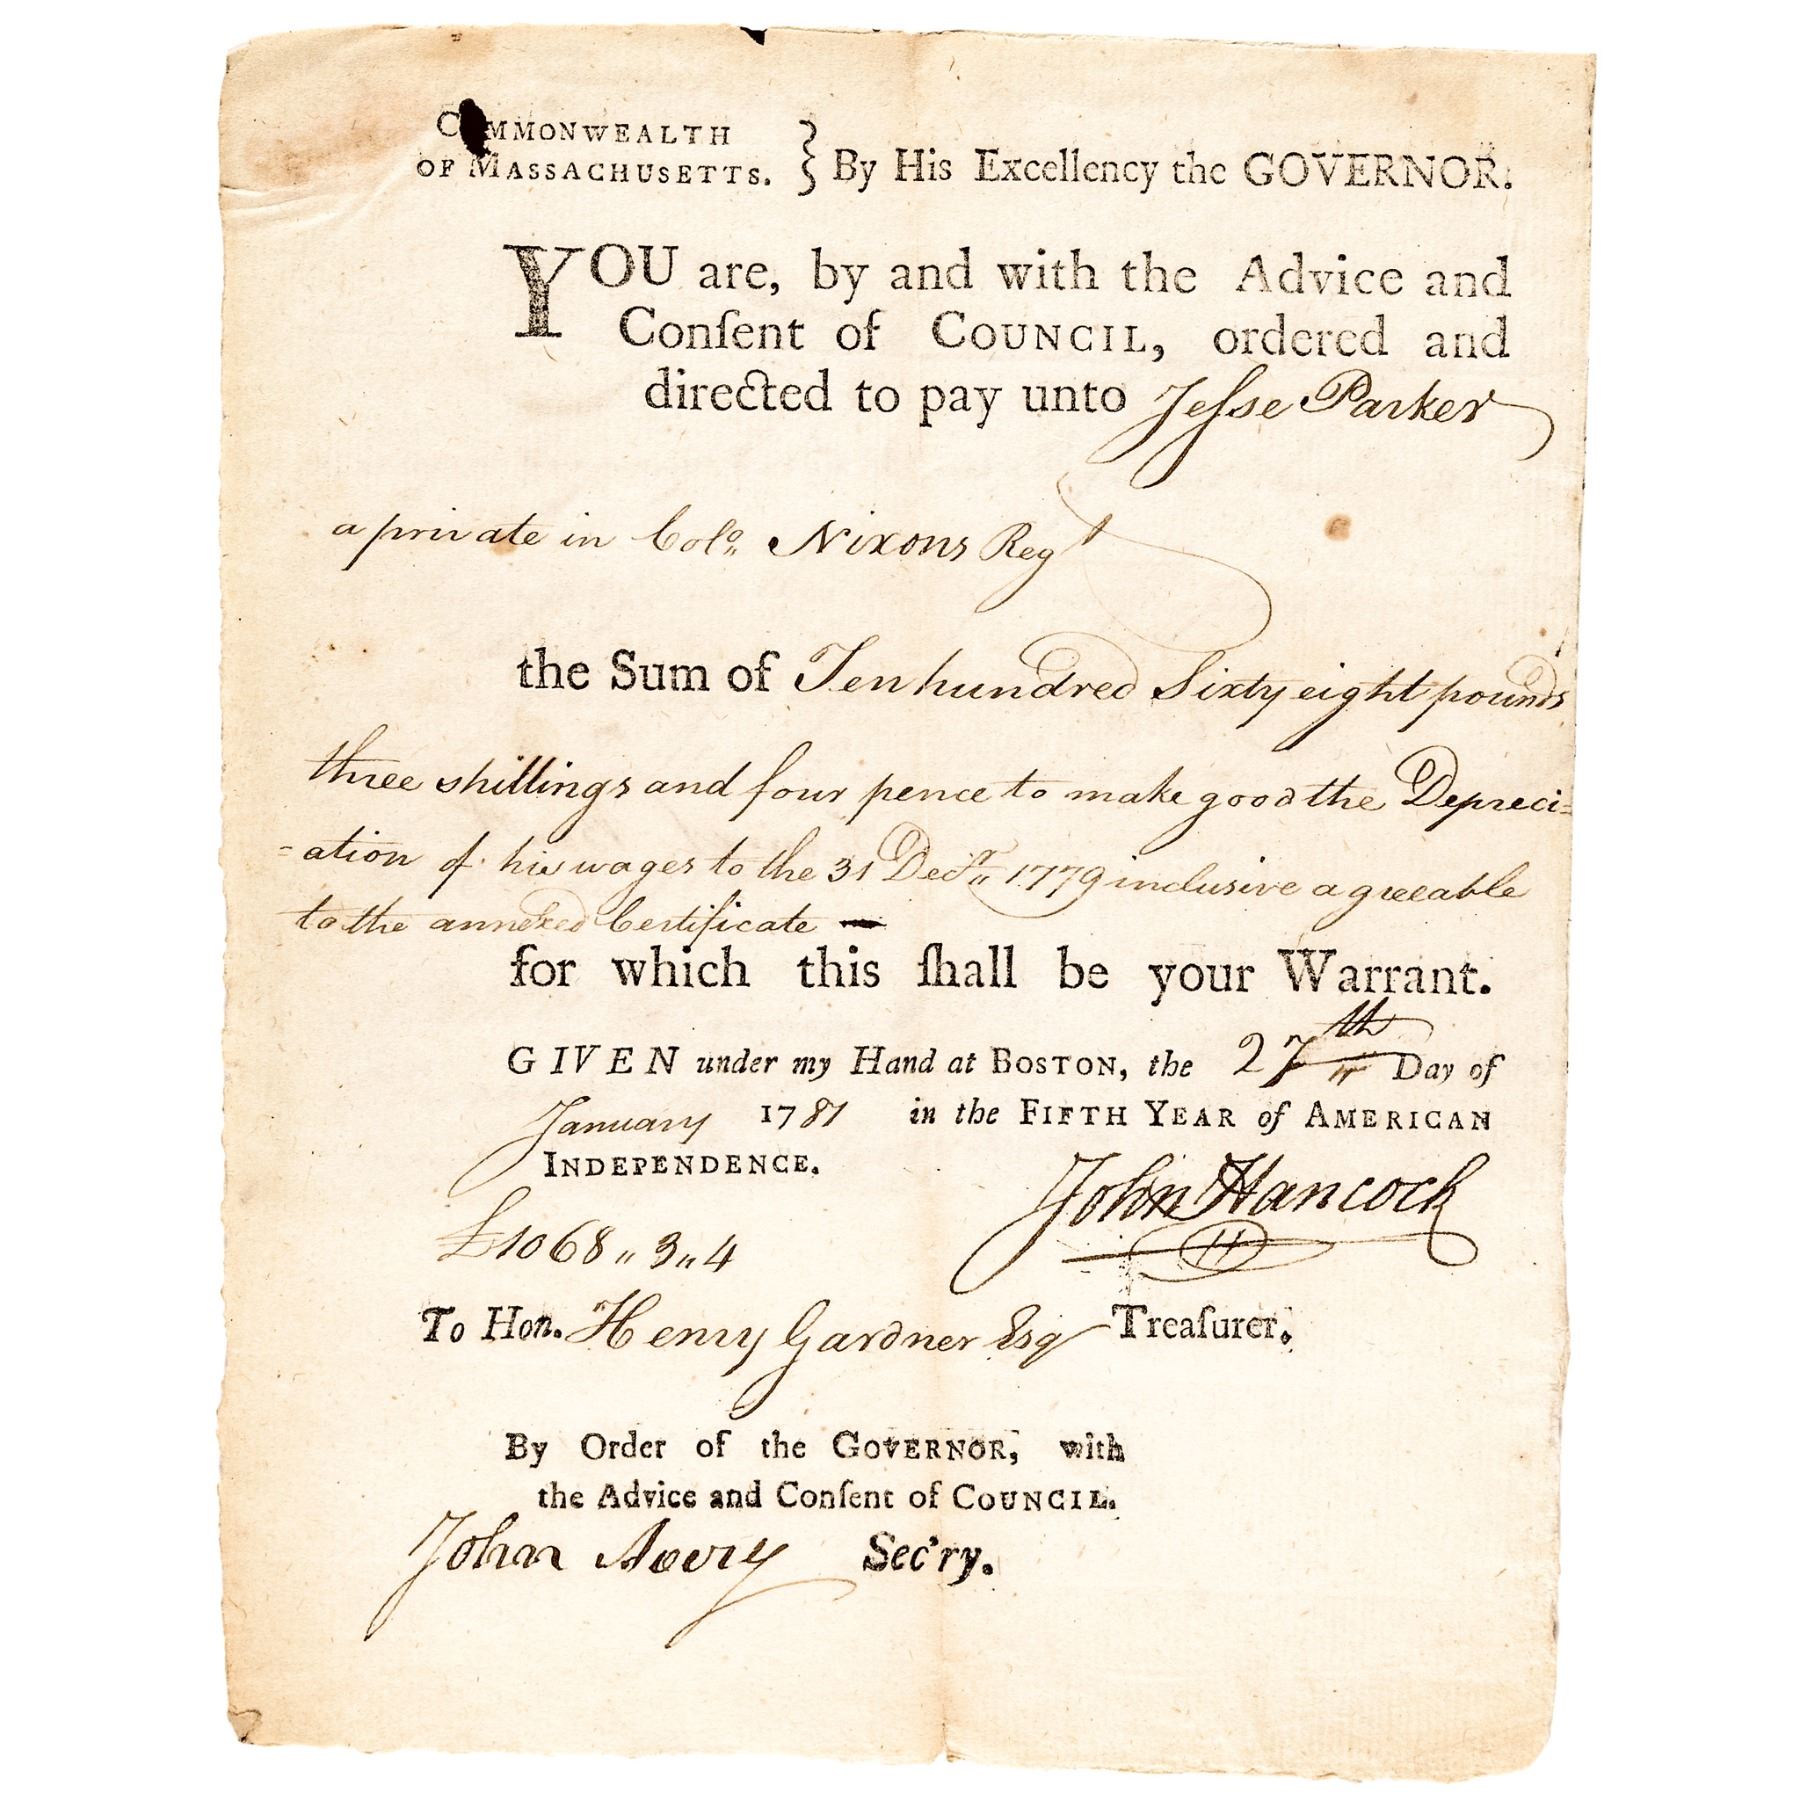 COMMONWEALTH
OF MASSACHUSETTS. } By His Excellency the GOVERNOR.
YOU are, by and with the Advice and
Conſent of COUNCIL, ordered and
directed to pay unto Jeſse Parker
a private in Colo. Nixons Regt
the Sum of Ten hundred Sixty eight pounds
three shillings and four pence to make good the Depreci=
=ation of his wages to the 31 Decr. 1779 inclusive agreeable
to the annexed Certificate —
for which this ſhall be your Warrant.
GIVEN under my Hand at BOSTON, the 27th Day of
January 1781 in the FIFTH YEAR of AMERICAN
INDEPENDENCE.
John Hancock
£1068 „ 3 „ 4
To Hon. Henry Gardner Esq Treaſurer.
By Order of the GOVERNOR, with
the Advice and Conſent of COUNCIL.
John Avery Sec'ry.